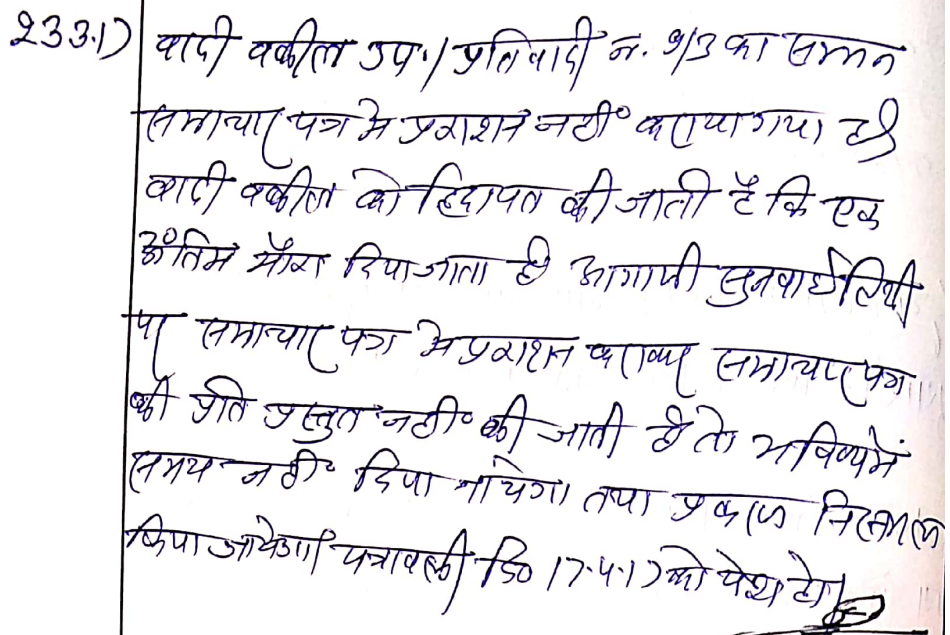 23.3.17 वादी वकील उप.। प्रतिवादी न. 9/3 का सम्मन
समाचार पत्र मे प्रकाशन नही कराया गया है।
वादी वकील को हिदायत की जाती है कि एक
अंतिम मौका दिया जाता है आगामी सुनवाई तिथी
पर समाचार पत्र मे प्रकाशन कराकर समाचार पत्र
की प्रति प्रस्तुत नही की जाती है तो भविष्य में
समय नही दिया जायेगा तथा प्रकरण निस्तारण
किया जायेगा। पत्रावली दि० 17.4.17 को पेश हो।